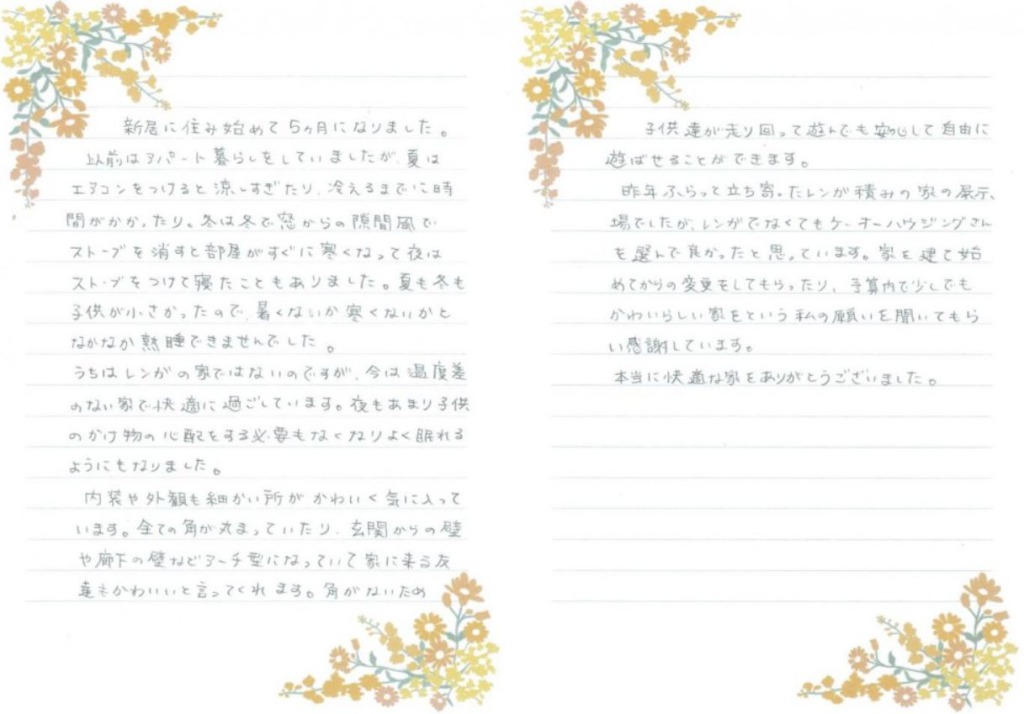 新居に住み始めて5ヵ月になりました。
以前はアパート暮らしをしていましたが、夏は
エアコンをつけると涼しすぎたり、冷えるまでに時
間がかかったり。冬は冬で窓からの隙間風で
ストーブを消すと部屋がすぐに寒くなって夜は
ストーブをつけて寝たこともありました。夏も冬も
子供が小さかったので、暑くないか寒くないかと
なかなか熟睡できませんでした。
うちはレンガの家ではないのですが、今は温度差
のない家で快適に過ごしています。夜もあまり子供
のかけ物の心配をする必要もなくなりよく眠れる
ようにもなりました。
内装や外観も細かい所がかわいく気に入って
います。全ての角が丸まっていたり、玄関からの壁
や廊下の壁などアーチ型になっていて家に来る友
達もかわいいと言ってくれます。角がないため
子供達が走り回って遊んでも安心して自由に
遊ばせることができます。
昨年ふらって立ち寄ったレンガ積みの家の展示
場でしたが、レンガでなくてもケーオーハウジングさん
を選んで良かったと思っています。家を建て始
めてからの変更をしてもらったり、予算内で少しでも
かわいらしい家をという私の願いを聞いてもら
い感謝しています。
本当に快適な家をありがとうございました。